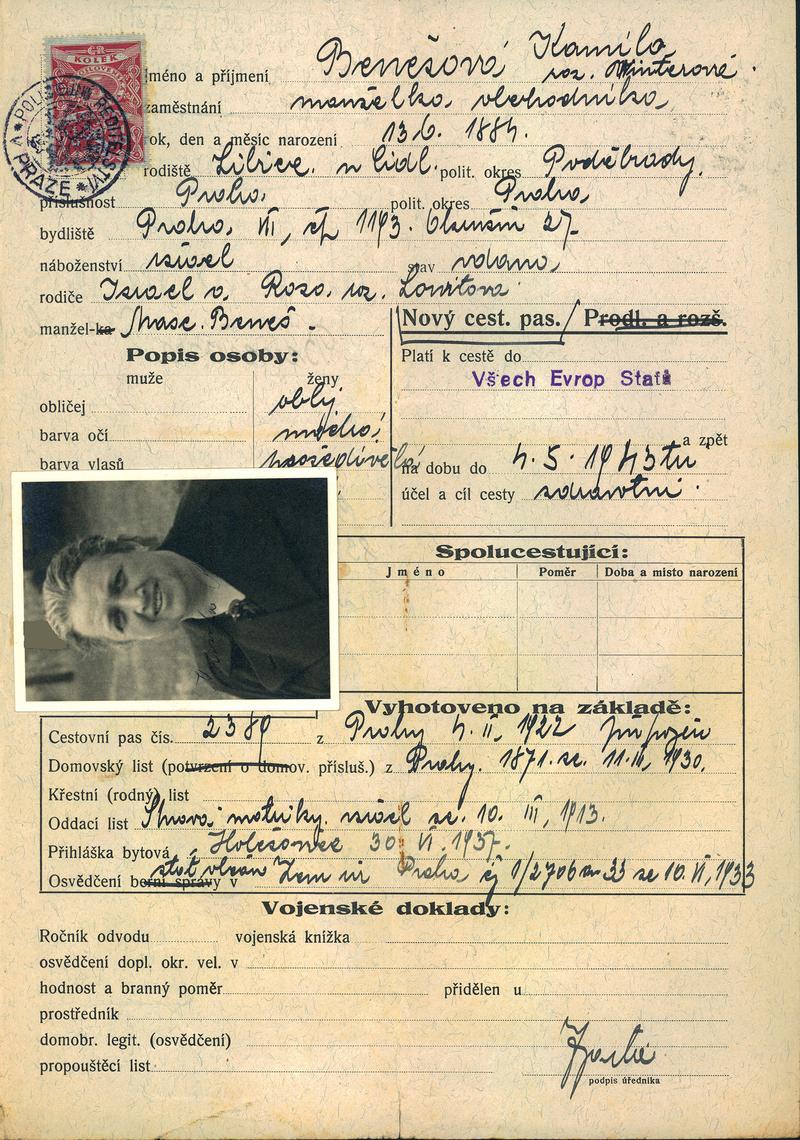 ČR
KOLEK
POLICEJNÍ ŘEDITELSTVÍ V PRAZE
Jméno a příjmení Benešová Kamila
roz. Winterová
zaměstnání manželka obchodníka
rok, den a měsíc narození 13.6. 1884.
rodiště Libice n Cidl. polit. okres Poděbrady.
příslušnost Praha, polit. okres Praha,
bydliště Praha, VII, čp 1193. 27
náboženství israel stav vdaná,
rodiče Israel a Rosa, roz. Lowitova
manžel-ka Masc. Beneš
Nový cest. pas. / Prodl. a rozš.
Popis osoby:
muže ženy
Platí k cestě do
Všech Evrop Států
obličej oblý
barva očí modrá
barva vlasů prošedivělá
a zpět
na dobu do 4.5.1943
účel a cíl cesty zdravotní.
Spolucestující:
Jméno Poměr Doba a místo narození
Vyhotoveno na základě:
Cestovní pas čís. 2389 z Prahy 4. II, 1922
Domovský list (potvrzení o domov. přísluš.) z Prahy. 1871. ze. 11. III, 1930.
Křestní (rodný) list
Oddací list matriky. israel ze. 10. III, 1913.
Přihláška bytová Holešovice 30. VI. 1937.
Osvědčení berní správy v stát občan Zem úř Praha čj 1/2706 33 ze 10. VI, 1933
Vojenské doklady:
Ročník odvodu vojenská knížka
osvědčení dopl. okr. vel. v
hodnost a branný poměr přidělen u
prostředník
domobr. legit. (osvědčení)
propouštěcí list
podpis úředníka